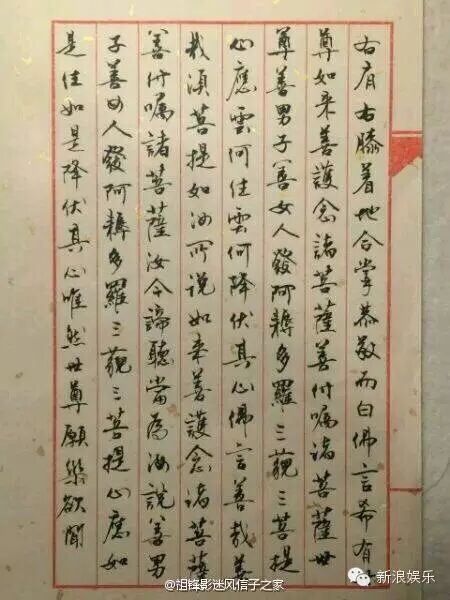 右肩右膝着地合掌恭敬而白佛言希有
尊如来善護念諸菩薩善付嘱諸菩薩世
尊善男子善女人發阿耨多羅三藐三菩提
心應雲何住雲何降伏其心佛言善哉善
哉須菩提如汝所说如来善護念諸菩薩
善付嘱諸菩薩汝今諦聽當為汝説善男
子善女人發阿耨多羅三藐三菩提心應如
是住如是降伏其心唯然世尊願樂欲聞
@祖锋影迷风信子之家
新浪娱乐